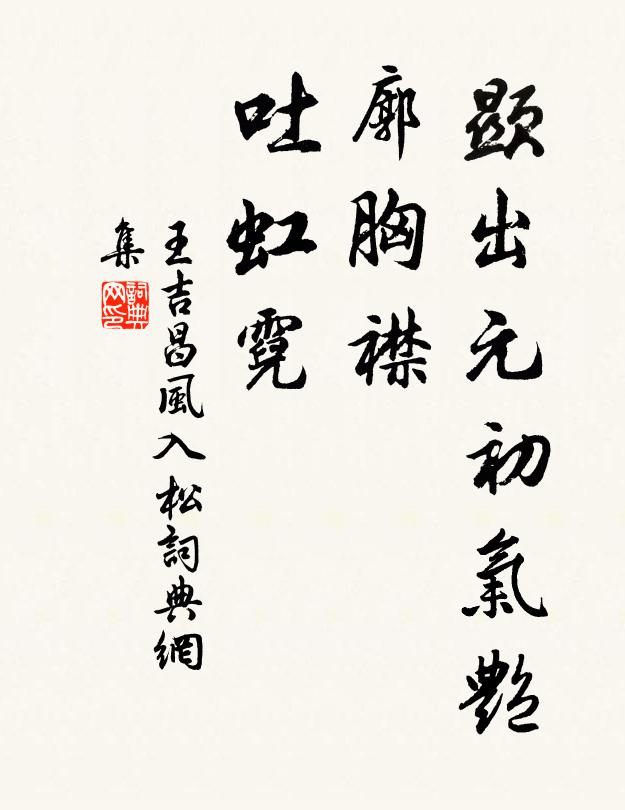 顯出元初氣艶
廓胸襟
吐虹霓
王吉昌風入松詞典網
集
詞典
网印